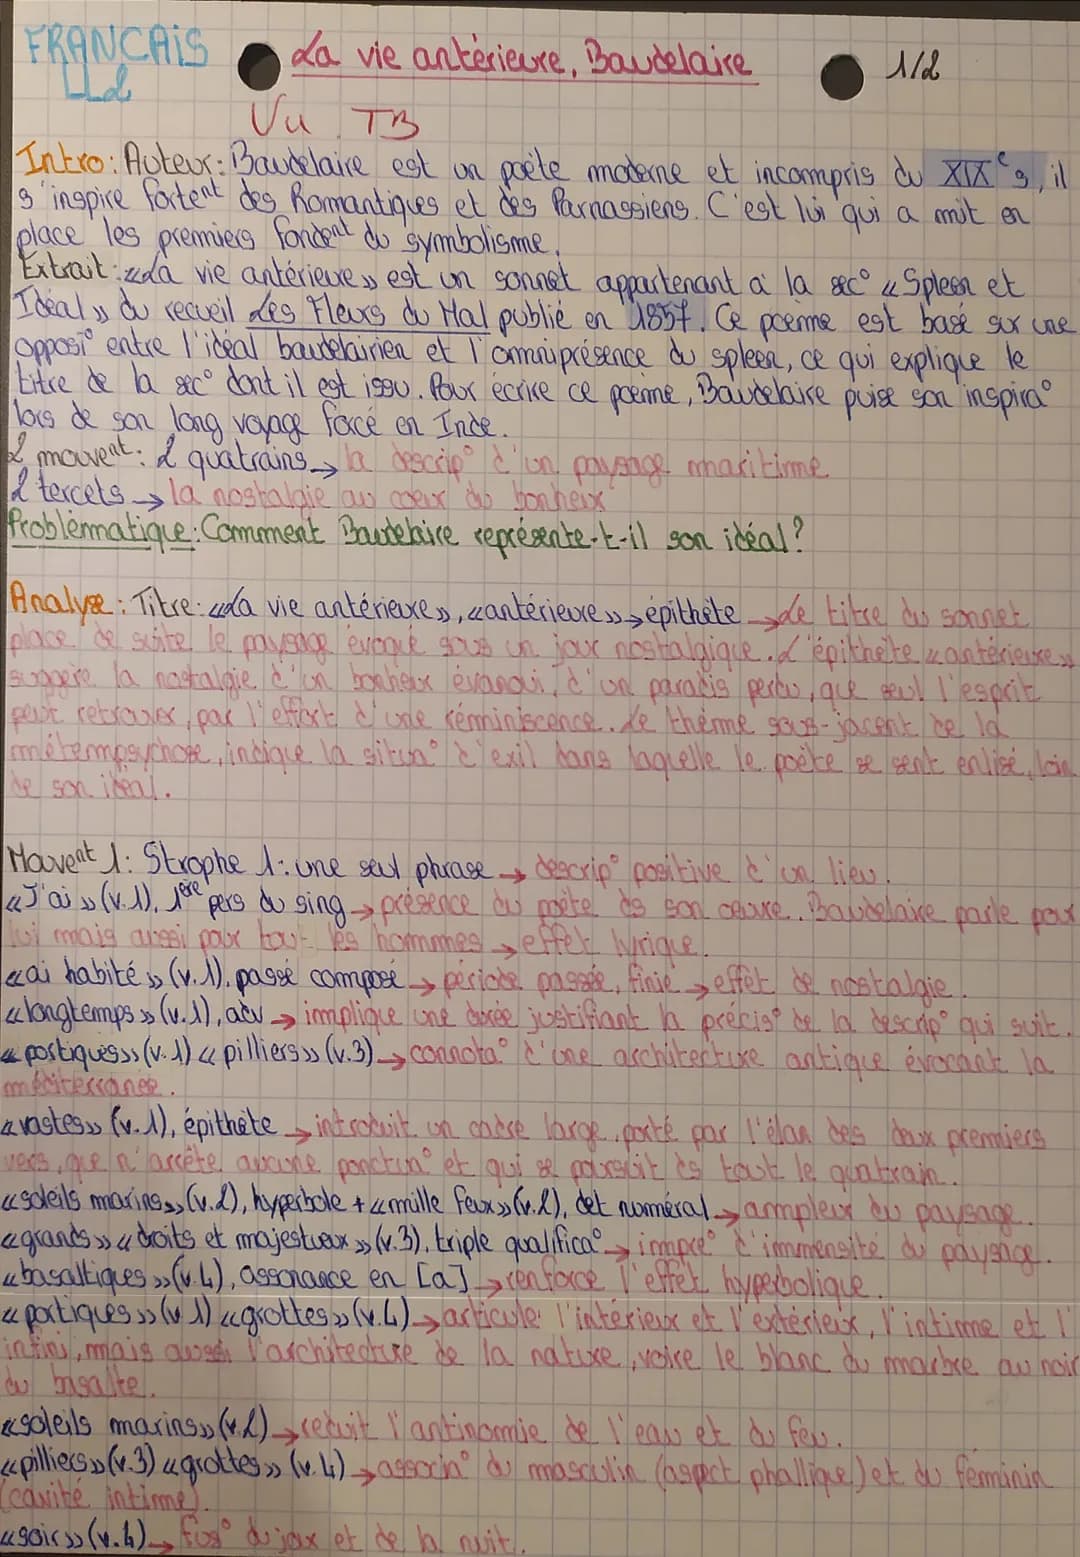 FRANÇAIS
LL2
La vie antérieure, Baudelaire
1/2
Vu TB
Intro: Auteur: Baudelaire est un poète moderne et incompris du XIXe s, il
s'inspire fortent des Romantiques et des Parnassiens. C'est lui qui a mit en
place les premiers fondent du symbolisme.
Extrait: «La vie antérieure» est un sonnet appartenant à la sec° «Spleen et
Idéal» du recueil Les Fleurs du Mal publié en 1857. Ce poème est basé sur une
opposi° entre l'idéal baudelairien et l'omniprésence du spleen, ce qui explique le
titre de la sec° dont il est issu. Pour écrire ce poème, Baudelaire puise son inspira°
lors de son long voyage forcé en Inde.
2 mouvent: 2 quatrains → la descrip° d'un paysage maritime
2 tercets → la nostalgie au coeur du bonheur
Problématique: Comment Baudelaire représente-t-il son idéal?
Analyse: Titre: «La vie antérieure», «antérieure» → épithète → Le titre du sonnet
place de suite le paysage évoqué sous un jour nostalgique. L'épithète «antérieure»
suggère la nostalgie d'un bonheur évanoui, d'un paradis perdu, que seul l'esprit
peut retrouver, par l'effort d'une réminiscence. Le thème sous-jacent de la
métempsychose, indique la situa° d'exil dans laquelle le poète se sent enlisé, loin
de son idéal.
Mouvent 1: Strophe 1: une seul phrase → descrip° positive d'un lieu.
«J'ai» (v.1), 1ère pers du sing → présence du poète ds son oeuvre. Baudelaire parle pour
lui mais aussi pour tout les hommes → effet lyrique.
«ai habité» (v.1), passé composé → période passée, finie → effet de nostalgie.
«longtemps» (v.1), adv → implique une durée justifiant la précis° de la descrip° qui suit.
«portiques» (v.1) «pilliers» (v.3) → connota° d'une architecture antique évocant la
méditerranée.
«vastes» (v.1), épithète → introduit un cadre large, porté par l'élan des deux premiers
vers, que n'arrête aucune ponctua° et qui se poursuit ds tout le quatrain.
«soleils marins» (v.2), hyperbole + «mille feux» (v.2), det numéral → ampleur du paysage.
«grands» «droits et majestueux» (v.3), triple qualifica° → impre° d'immensité du paysage.
«basaltiques» (v.4), assonance en [a] → renforce l'effet hyperbolique.
«portiques» (v.1) «grottes» (v.4) → articule l'intérieur et l'extérieur, l'intime et l'
infini, mais aussi l'architecture de la nature, voire le blanc du marbre au noir
du basalte.
«soleils marins» (v.2) → réduit l'antinomie de l'eau et du feu.
«pilliers» (v.3) «grottes» (v.4) → associa° du masculin (aspect phallique) et du féminin
(cavité intime).
«soir» (v.4) → fus° du jour et de la nuit.